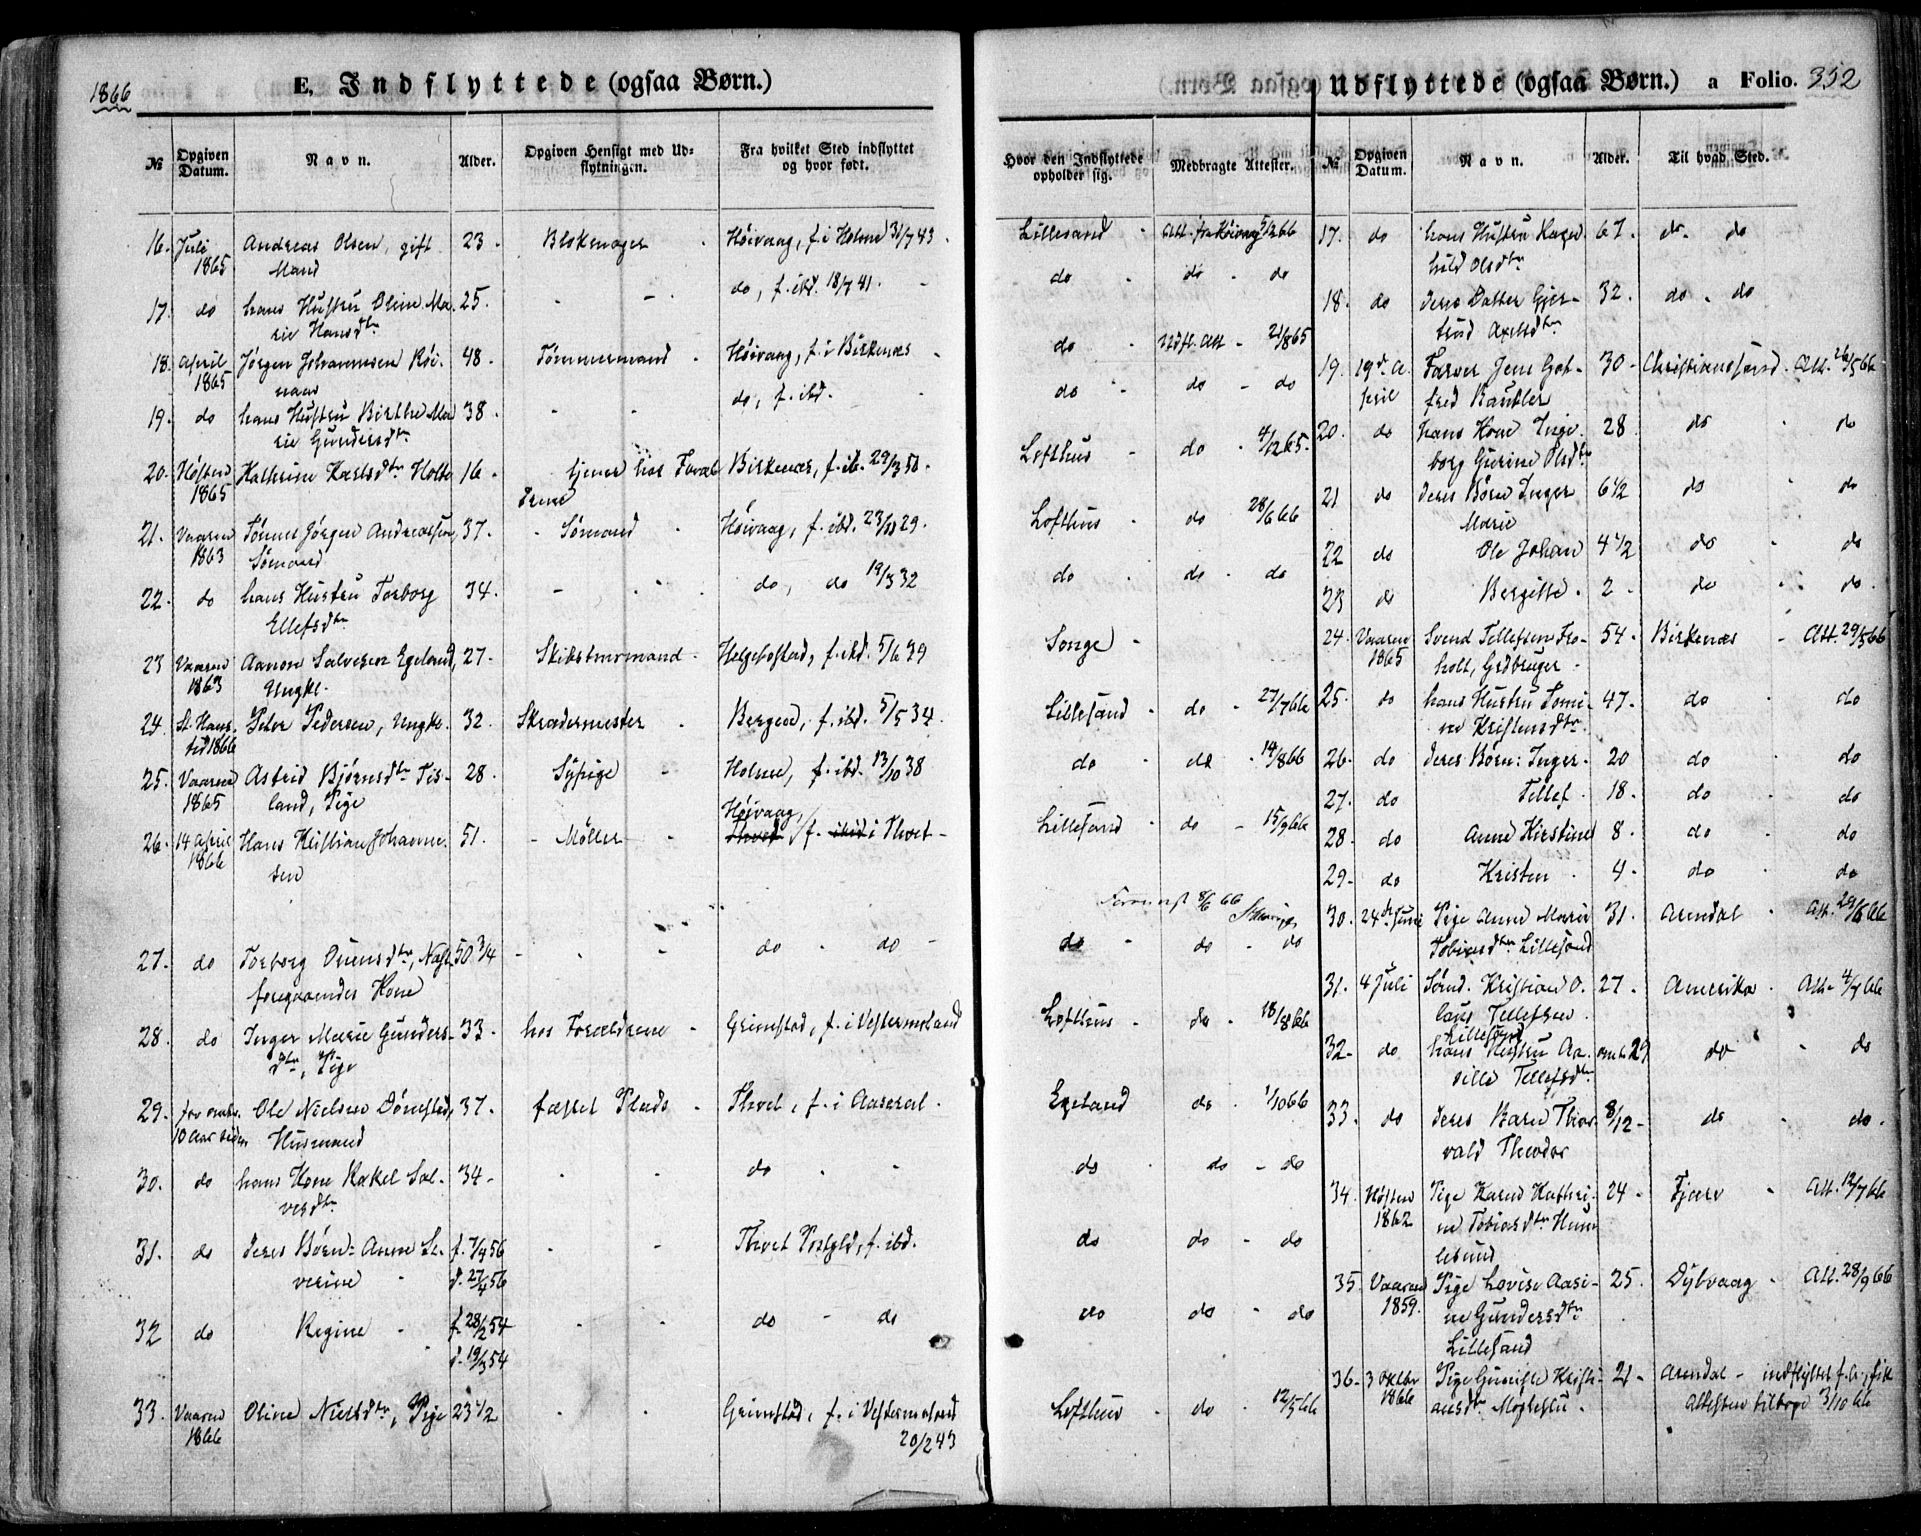 1866
E. Indflyttede (ogsaa Børn.)
№ Opgiven Datum. Navn. Alder. Opgiven Hensigt med Udflytningen. Fra hvilket Sted indflyttet og hvor født.
16. Juli 1865 Andreas Olsen, gift 23 Blokmager Høivaag, f. i Holme 31/7 43.
Mand
17. do hans Hustru Oline Ma- 25. - - do, f. ibd. 18/7 41.
rie Hansdtr
18. April 1865 Jørgen Johannesen 48 - Tømmermand Høivaag, f. i Birkenæs
19. do hans Hustru Birthe Ma- 38. - - do, f. ibd.
rie Gundersdtr
20. Høsten 1865 Kathrine Karlsdtr Holte 16. tjener hos Foræl- Birkenæs, f. ib. 29/3 50.
drene
21. Vaaren 1863 Tønnes Jørgen Andreassen, 37. - Sømand Høivaag, f. ibd. 23/10 29.
Sømand
22. do hans Hustru Torborg 34. - - do, do 19/3 32
Ellefsdtr
23 Vaaren 1863 Aanon Salvesen Egeland, 27. Skibstømmand Helgebostad, f. ibd. 5/6 39
Ungkl.
24. St. Hans- tid 1866 Peter Pedersen, Ungk. 32. Skrædermester Bergen, f. ibd. 5/5 34.
25. Vaaren 1865 Astrid Bjørnsdtr Tis- 28. Sypige Holme, f. ibd. 13/10 38
land, Pige
26. 14 April 1866 Hans Kristian Johanne- 51. - Møller Høivaag, f. i Thvet
sen
27. do Torborg Ounsdtr, Næst- 50 3/4 - - do do
foregaaendes Kone
28. do Inger Marie Gunders- 33. hos Forældrene Grimstad, f. i Vestermoland
dtr, Pige
29. for omtr. 10 Aar siden Ole Nielsen Dønestad, 37. fæstet Plads Thvet, f. i Aaseral.
Husmand
30. do hans Kone Rakel Sal- 34 - - - do
vesdtr
31. do deres Børn: Anne Se- f. 7/4 56 - - Thvet Prstgld, f. ibd.
verine d. 27/4 56
32 do Regine f. 28/2 54 - - do do
d. 19/3 54
33. Vaaren 1866 Oline Nielsdtr, Pige 23 1/2 - - Grimstad, f. i Vestermoland
20/2 43
Udflyttede (ogsaa Børn.) a Folio. 352
Hvor den Indflyttede opholder sig. Medbragte Attester. № Opgiven Datum. Navn. Alder. Til hvad Sted.
Lillesand Att. fra Høivaag 5/2 66
do do do
do Udfl. Att - 21/8 65
do do - do
Lofthus do 4/12 65.
Lofthus do 28/6 66
do do do
Songe
Lillesand do 27/7 66
do do 14/8 66
Lillesand do 15/9 66
do do do
Lofthus do 18/8 66
Egeland do 1/10 66
do do - do
do do - do
do do - do
Lofthus do 12/5 66
17. do hans Hustru Ragn- 67. do. do
hild Olsdtr
18. do deres Datter Gjer- 32. do do
trud Axelsdtr
19. 19de A- pril Farver Jens Got- 30 - Christianssand. Att. 26/5 66
fred Bautler
20. do hans Kone Inge- 28 do do
borg Gurine Olsdtr
21 do deres Børn Inger 6 1/2 do do
Marie
22 do Ole Johan 4 1/2 do do
23 do Bergitte 2 - do do
24. Vaaren 1865 Svend Tellefsen Fro- 54 - Birkenæs - Att. 29/5 66
holt, Grdbruger
25. do hans Hustru Tomi- 47. do do
ne Kristensdtr
26. do deres Børn: Inger 20 do do
27. do Tellef 18. do do
28 do Anne Kirstine 8. do do
29 - do Kristen 4 - do do
30. 24de Juni Pige Anne Marie 31. Arendal Att. 29/6 66
Tobiasdtr Lillesand
31. 4 Juli Sømd. Kristian O- 27. Amerika. Att 4/7 66
laus Tellefsen
Lillesand
32 - do hans Hustru Aa- omtr. 29 do do
sille Tellefsdtr
33. do deres Barn Thor- 8/12 - do do.
vald Theodor
34. Høsten 1862 Pige Karen Kathri- 24 - Fjære Att. 12/7 66
ne Tobiasdtr Hum-
lesund
35. Vaaren 1859. Pige Lovise Aasi- 25. Dybvaag Att. 28/9 66
ne Gundersdtr
Lillesand
36 - 3 Oktbr 1866 Pige Gunilde Kristi- 21 - Arendal - indflyttet f. A., fik
ansdtr Møglestu Attesten tilbage 3/10 66